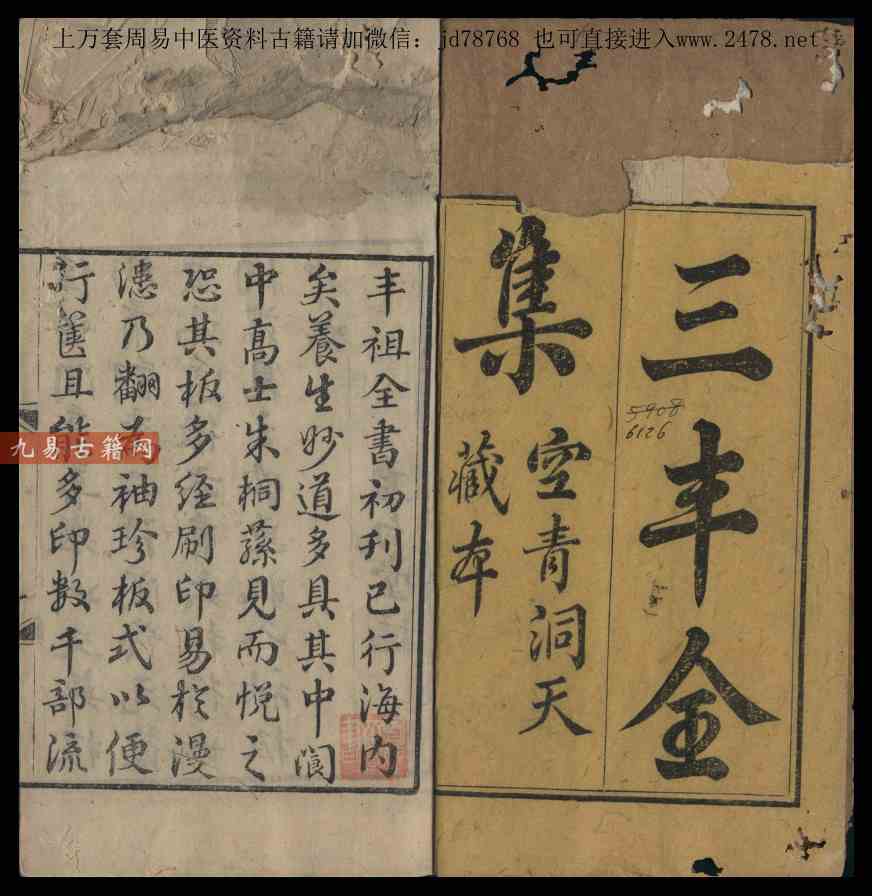 上万套周易中医资料古籍请加微信：jd78768 也可直接进入www.2478.net
三丰全
集
空青洞天
藏本
5908
6126
丰祖全书初刊已行海内
矣養生妙道多具其中阆
中高士朱桐蓀見而悦之
恐其板多经刷印易於漫
漶乃翻為袖珍板式以便
行箧且能多印数千部流
九易古籍网